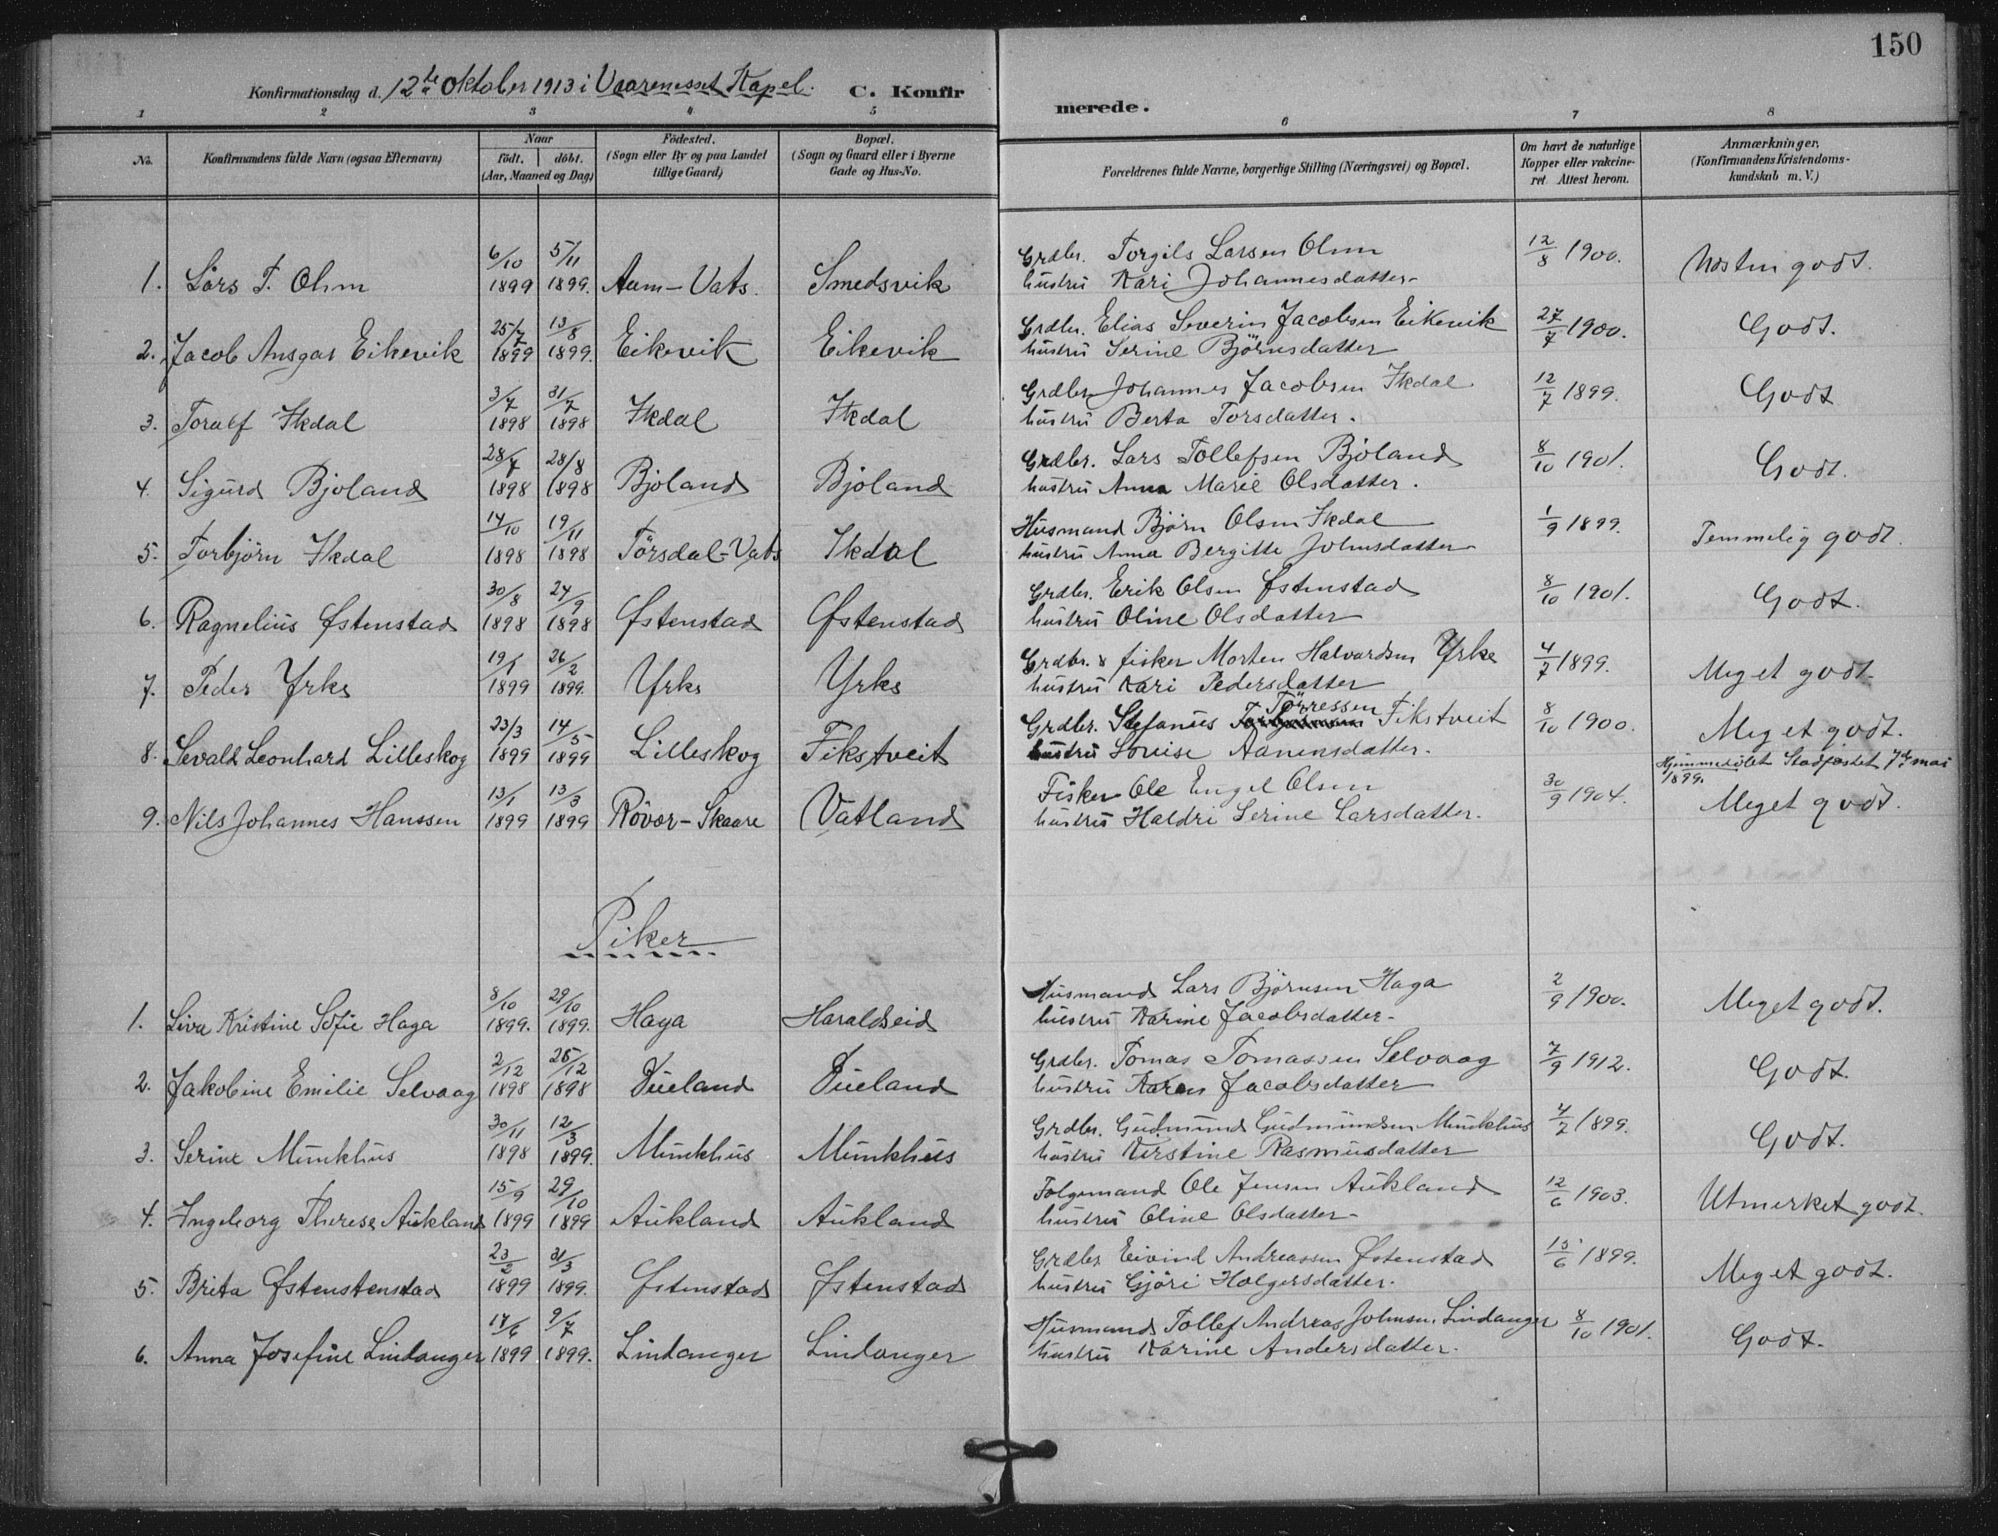 150
Konfirmationsdag d. 12te Oktober 1913 i Vaarenesset Kapel. C. Konfir merede.
1 2 3 4 5 6 7 8
No. Konfirmandens fulde Navn (ogsaa Efternavn) Naar født. døbt. (Aar, Maaned og Dag) Fødested. (Sogn eller By og paa Landet tillige Gaard) Bopæl. (Sogn og Gaard eller i Byerne Gade og Hus-No. Forældrenes fulde Navne, borgerlige Stilling (Næringsvei) og Bopæl. Om havt de naturlige Kopper eller vakcineret Attest herom. Anmærkninger. (Konfirmandens Kristendomskundskab m. V.)
1. Lars T. Ohm 6/10 1899 5/11 1899. Aam-Vats. Smedsvik Grdbr. Torgils Larsen Ohm 12/8 1900. Næsten godt.
hustru Kari Johannesdatter
2. Jacob Ansgar Eikevik 25/7 1899 13/8 1899. Eikevik Eikevik Grdbr. Elias Severin Jacobsen Eikevik 27/7 1900. Godt.
hustru Serine Bjørnsdatter
3. Toralf Ikdal 3/7 1898 31/7 1898 Ikdal Ikdal Grdbr Johannes Jacobsen Ikdal 12/7 1899. Godt
hustru Berta Torsdatter.
4. Sigurd Bjoland 28/7 1898 28/8 1898 Bjoland Bjoland Grdbr. Lars Tollefsen Bjoland 8/10 1901. Godt.
hustru Anna Marie Olsdatter.
5. Torbjørn Ikdal 14/10 1898 19/11 1898 Törsdal-Vats Ikdal Husmand Bjørn Olsen Ikdal 1/9 1899. Temmelig godt.
hustru Anna Bergitte Johnsdatter
6. Ragnelius Østenstad 30/8 1898 24/9 1898 Østenstad Østenstad Grdbr. Erik Olsen Østenstad 8/10 1901. Godt.
hustru Oline Olsdatter
7. Peder Yrke 19/1 1899 26/2 1899. Yrke Yrke Grdbr. & fisker Morten Halvardsen Yrke 4/7 1899. Meget godt.
hustru Kari Pedersdatter
8. Sevald Leonhard Lilleskog 23/3 1899 14/5 1899 Lilleskog Fikstveit Grdbr. Stefanus Törressen Fikstveit 8/10 1900. Meget godt.
hustru Lovise Aanensdatter. Hjemmedöbt Stadfæstet 7de mai 1899.
9. Nils Johannes Hanssen 13/1 1899 13/3 1899 Rövær-Skaare Vatland Fisker Ole Engel Olsen 30/9 1904. Meget godt.
hustru Haldri Serine Larsdatter.
Piker
1. Liva Kristine Sofie Haga 8/10 1899. 29/10 1899. Haga Haraldseid Husmand Lars Bjørnsen Haga 2/9 1900. Meget godt.
hustru Karine Jacobsdatter
2. Jakobine Emilie Selvaag 2/12 1898 25/12 1898 Dueland Dueland Grdbr. Tomas Tomassen Selvaag 7/9 1912. Godt.
hustru Karen Jacobsdatter
3. Serine Munkhus 30/11 1898 12/3 1899. Munkhus Munkhus Grdbr. Gudmund Gudmundsen Munkhus 4/7 1899. Godt.
hustru Kirstine Rasmusdatter
4. Ingeborg Therese Aukland 15/9 1899 29/10 1899 Aukland Aukland Folgemand Ole Jensen Aukland 12/6 1903. Utmerket godt.
hustru Oline Olsdatter
5. Brita Østenstenstad 23/2 1899 31/3 1899. Østenstad Østenstad Grdbr Eivind Andreassen Østenstad 15/6 1899. Meget godt.
hustru Gjöri Holgersdatter.
6. Anna Josefine Lindanger 17/6 1899 9/7 1899. Lindanger Lindanger Husmand Tollef Andreas Johnsen Lindanger 8/10 1901. Godt.
hustru Karine Andersdatter.